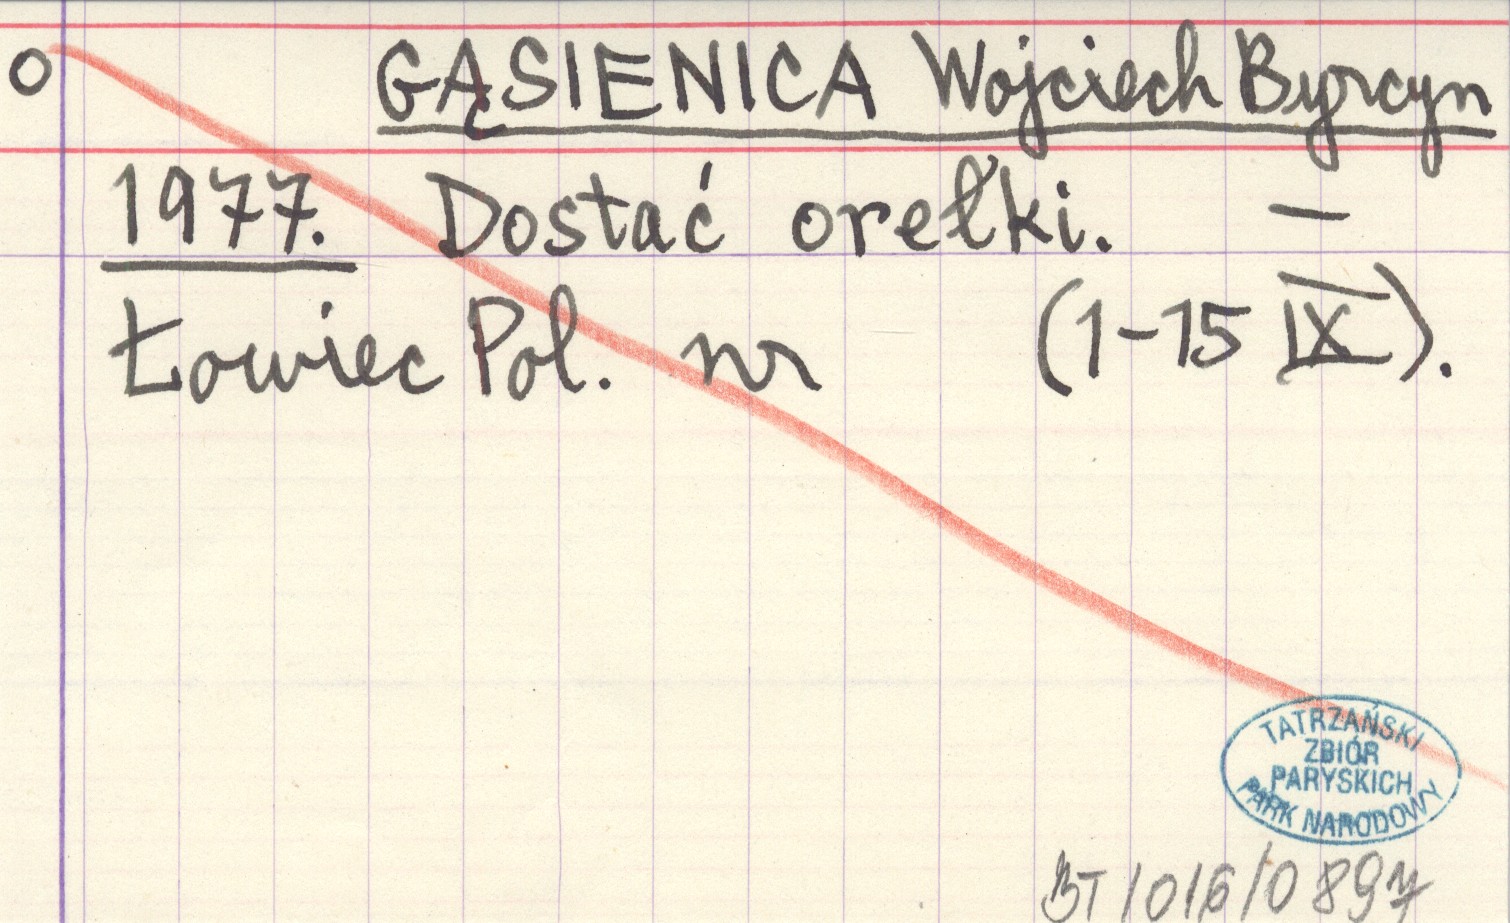 O GĄSIENICA Wojciech Byrcyn
1977. Dostać orełki. —
Łowiec Pol. nr (1-15 IX).
TATRZAŃSKI
ZBIÓR
PARYSKICH
PARK NARODOWY
BT/016/0897